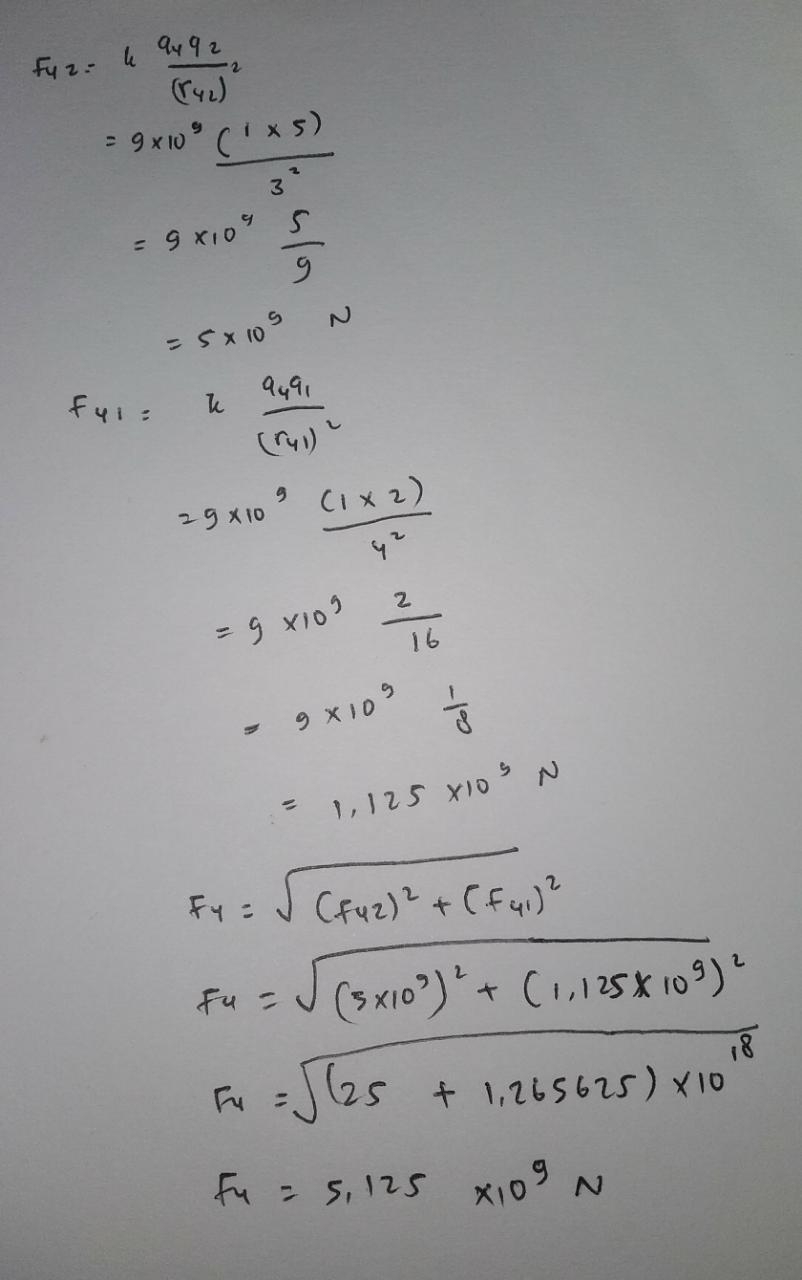 F42 = k q4q2 / (r42)²
= 9 x 10⁹ (1 x 5) / 3²
= 9 x 10⁹ 5/9
= 5 x 10⁹ N
F41 = k q4q1 / (r41)²
= 9 x 10⁹ (1 x 2) / 4²
= 9 x 10⁹ 2/16
= 9 x 10⁹ 1/8
= 1,125 x 10⁹ N
F4 = √((F42)² + (F41)²)
F4 = √((5x10⁹)² + (1,125 x 10⁹)²)
F4 = √((25 + 1,265625) x 10¹⁸)
F4 = 5,125 x 10⁹ N